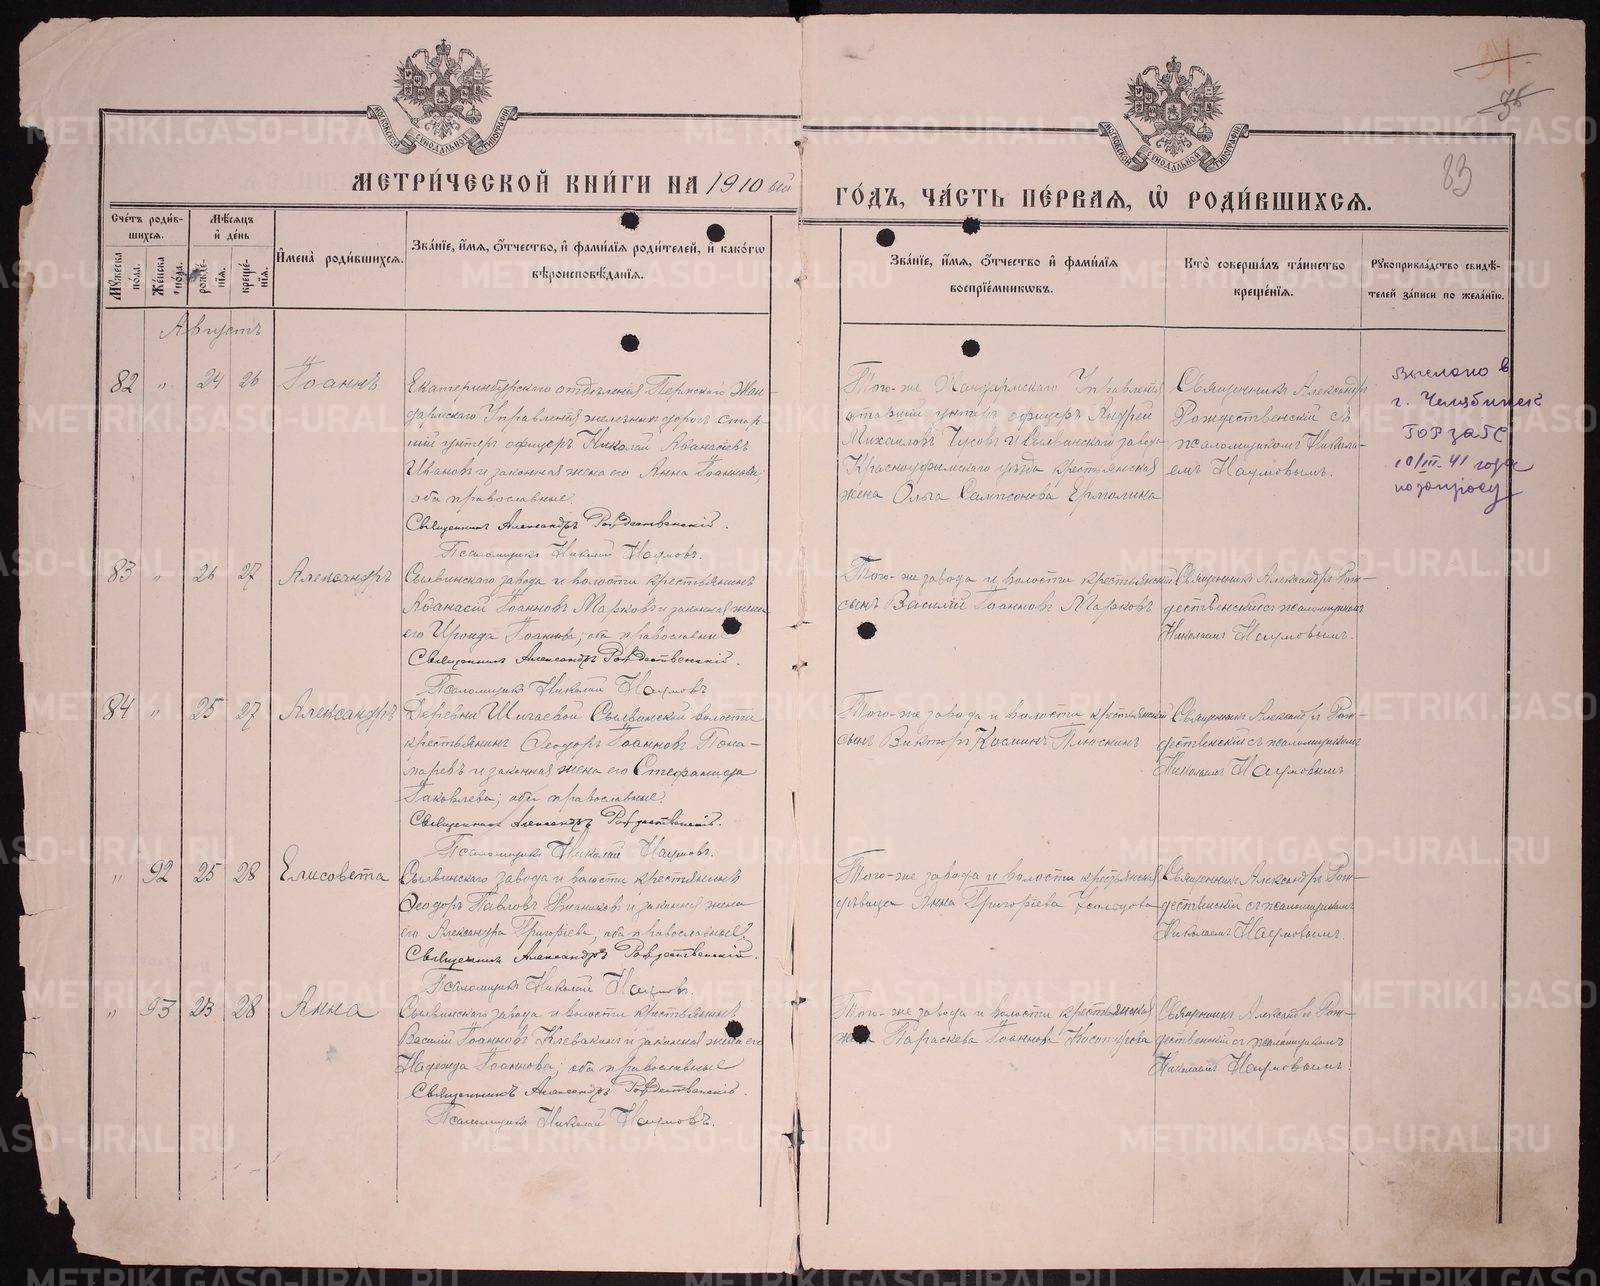 МЕТРИЧЕСКОЙ КНИГИ НА 1910 ый
ГОДЪ, ЧАСТЬ ПЕРВАЯ, Ѡ РОДИВШИХСЯ.
83
Счетъ родившихся.
Мужеска пола.
Женска пола.
Мѣсяцъ и день
рожденія.
крещенія.
Имена родившихся.
Званіе, имя, отчество, и фамилія родителей, и какогѡ
вѣроисповѣданія.
Званіе, имя, отчество и фамилія
воспріемниковъ.
Кто совершалъ таинство
крещенія.
Рукоприкладство свидѣтелей записи по желанію.
Августъ
82 " 24 26 Іоаннъ
Екатеринбургскаго отдѣленія Пермскаго Жан-
дармскаго Управленія желѣзныхъ дорогъ стар-
шій унтеръ офицеръ Николай Аѳанасіевъ
Ивановъ и законная жена его Анна Іоаннова;
оба православные.
Священникъ Александръ Рождественскій.
Псаломщикъ Николай Наумовъ.
Того-же Жандармскаго Управленія
старшій унтеръ офицеръ Андрей
Михаиловъ Чусовъ и Сылвинскаго завода
Красноуфимскаго уѣзда крестьянская
жена Ольга Сампсонова Ермолина
Священникъ Александръ
Рождественскій съ
псаломщикомъ Никола-
емъ Наумовымъ.
Выслано в
г. Челябинск
ГОРЗАГС
10/III-41 года
по запросу
83 " 26 27 Александръ
Сылвинскаго завода и волости крестьянинъ
Аѳанасій Іоанновъ Марковъ и законная жена
его Ираида Іоаннова; оба православные
Священникъ Александръ Рождественскій.
Псаломщикъ Николай Наумовъ
Того-же завода и волости крестьянскій
сынъ Василій Іоанновъ Марковъ
Священникъ Александръ Рож-
дественскій съ псаломщикомъ
Николаемъ Наумовымъ.
84 " 25 27 Александръ
Деревни Шигаевой Сылвинской волости
крестьянинъ Ѳеодоръ Іоанновъ Поно-
маревъ и законная жена его Стефанида
Іаковлева; оба православные.
Священникъ Александръ Рождественскій.
Псаломщикъ Николай Наумовъ.
Того-же завода и волости крестьянскій
сынъ Викторъ Косминъ Плюснинъ
Священникъ Александръ Рож-
дественскій съ псаломщикомъ
Николаемъ Наумовымъ
" 92 25 28 Елисовета
Сылвинскаго завода и волости крестьянинъ
Ѳеодоръ Павловъ и законная жена
его Александра Григоріева; оба православные.
Священникъ Александръ Рождественскій.
Псаломщикъ Николай Наумовъ.
Того-же завода и волости крестьянская
дѣвица Анна Григоріева
Священникъ Александръ Рож-
дественскій съ псаломщикомъ
Николаемъ Наумовымъ.
" 93 23 28 Анна
Сылвинскаго завода и волости крестьянинъ
Василій Іоанновъ Клевакинъ и законная жена его
Надежда Іоаннова; оба православные
Священникъ Александръ Рождественскій.
Псаломщикъ Николай Наумовъ.
Того-же завода и волости крестьянская
жена Параскева Іоаннова
Священникъ Александръ Рож-
дественскій съ псаломщикомъ
Николаемъ Наумовымъ.
METRIKI.GASO-URAL.RU